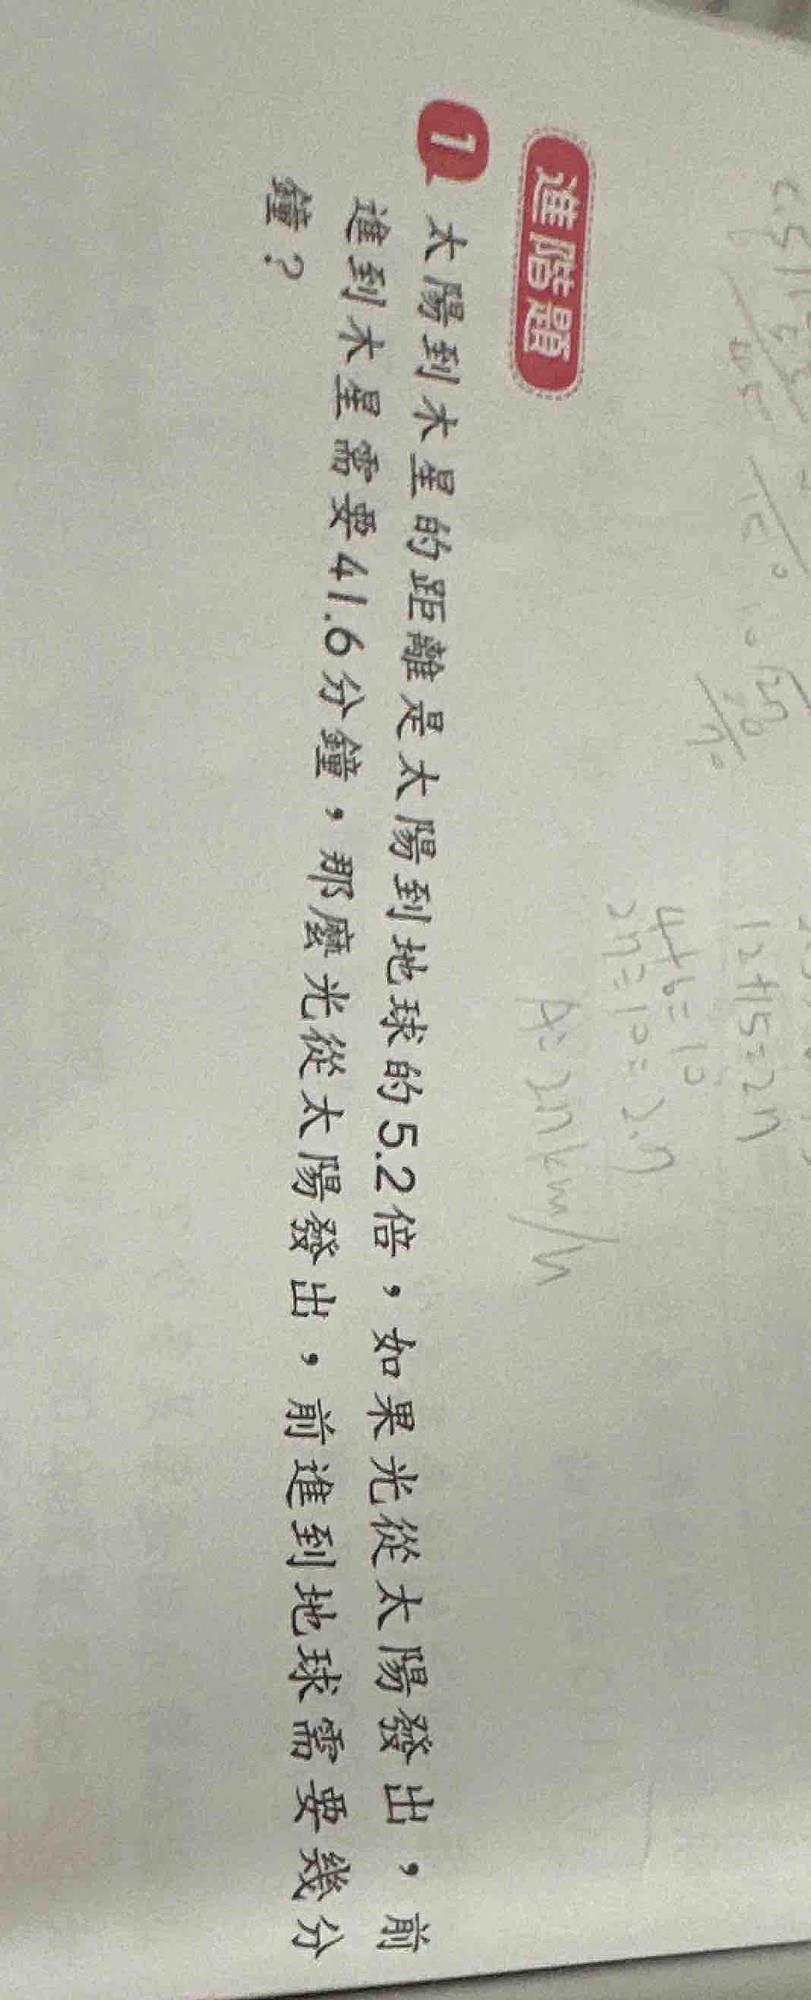 進階題
1 太陽到木星的距離是太陽到地球的5.2倍，如果光從太陽發出，前
進到木星需要41.6分鐘，那麼光從太陽發出，前進到地球需要幾分
鐘？
12+15=27
4+6=10
27÷10=2.7